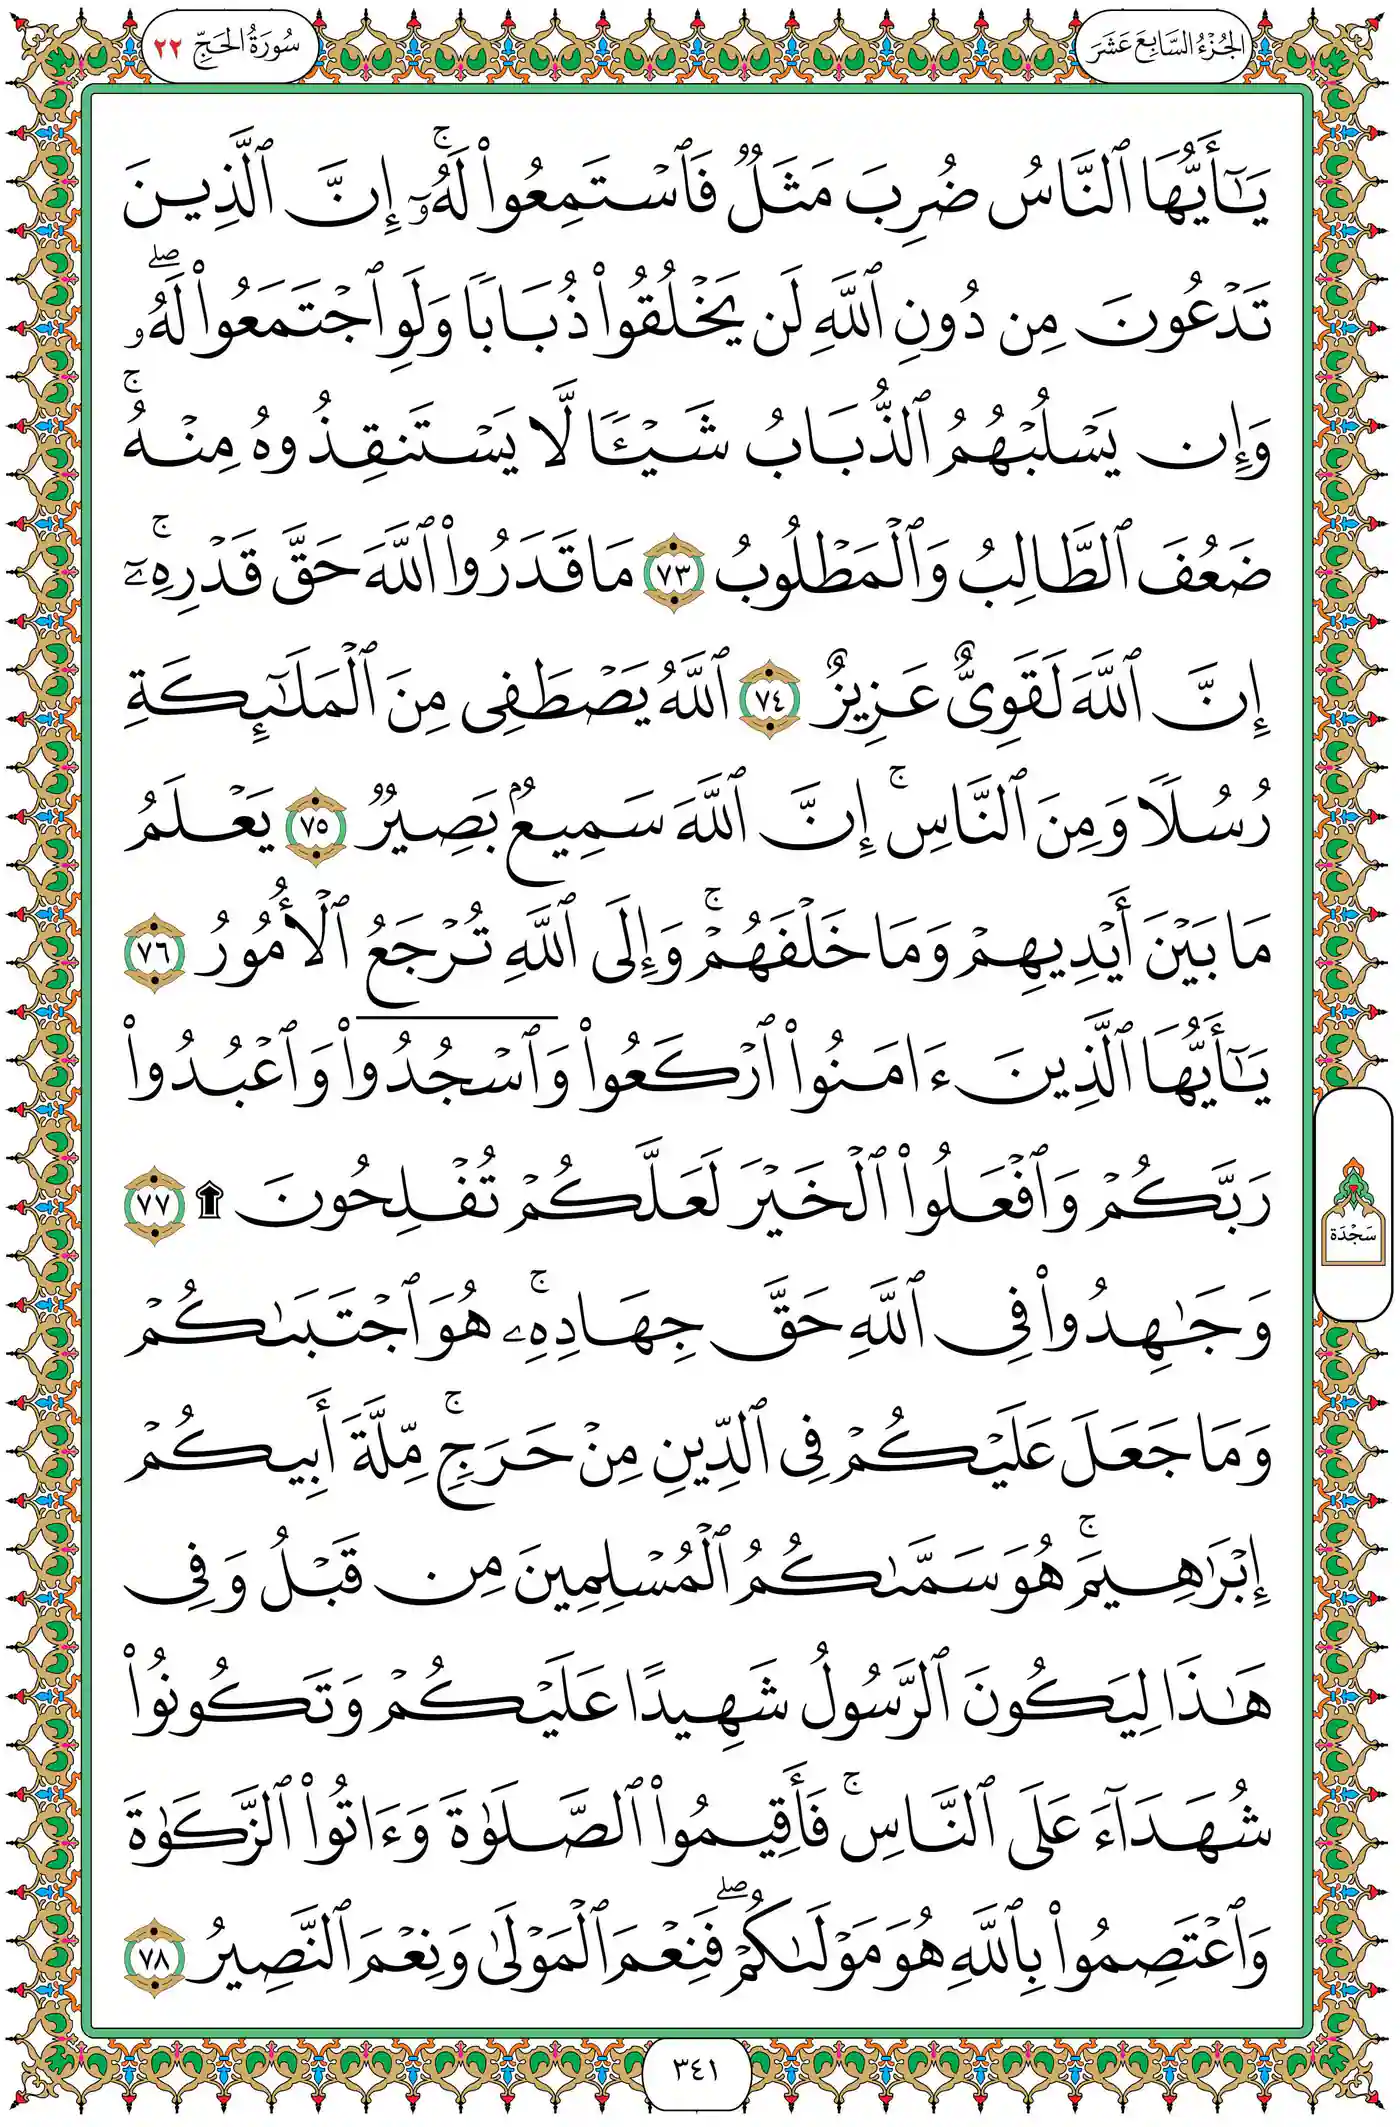 الجزء السابع عشر
سورة الحج ٢٢
يَـٰٓأَيُّهَا ٱلنَّاسُ ضُرِبَ مَثَلٌ فَٱسْتَمِعُوا۟ لَهُۥٓ ۚ إِنَّ ٱلَّذِينَ
تَدْعُونَ مِن دُونِ ٱللَّهِ لَن يَخْلُقُوا۟ ذُبَابًا وَلَوِ ٱجْتَمَعُوا۟ لَهُۥ ۖ
وَإِن يَسْلُبْهُمُ ٱلذُّبَابُ شَيْـًٔا لَّا يَسْتَنقِذُوهُ مِنْهُ ۚ
ضَعُفَ ٱلطَّالِبُ وَٱلْمَطْلُوبُ ٧٣ مَا قَدَرُوا۟ ٱللَّهَ حَقَّ قَدْرِهِۦٓ ۚ
إِنَّ ٱللَّهَ لَقَوِىٌّ عَزِيزٌ ٧٤ ٱللَّهُ يَصْطَفِى مِنَ ٱلْمَلَـٰٓئِكَةِ
رُسُلًا وَمِنَ ٱلنَّاسِ ۚ إِنَّ ٱللَّهَ سَمِيعٌۢ بَصِيرٌ ٧٥ يَعْلَمُ
مَا بَيْنَ أَيْدِيهِمْ وَمَا خَلْفَهُمْ ۗ وَإِلَى ٱللَّهِ تُرْجَعُ ٱلْأُمُورُ ٧٦
يَـٰٓأَيُّهَا ٱلَّذِينَ ءَامَنُوا۟ ٱرْكَعُوا۟ وَٱسْجُدُوا۟ وَٱعْبُدُوا۟
رَبَّكُمْ وَٱفْعَلُوا۟ ٱلْخَيْرَ لَعَلَّكُمْ تُفْلِحُونَ ۩ ٧٧
سَجْدَة
وَجَـٰهِدُوا۟ فِى ٱللَّهِ حَقَّ جِهَادِهِۦ ۚ هُوَ ٱجْتَبَىٰكُمْ
وَمَا جَعَلَ عَلَيْكُمْ فِى ٱلدِّينِ مِنْ حَرَجٍ ۚ مِّلَّةَ أَبِيكُمْ
إِبْرَٰهِيمَ ۚ هُوَ سَمَّىٰكُمُ ٱلْمُسْلِمِينَ مِن قَبْلُ وَفِى
هَـٰذَا لِيَكُونَ ٱلرَّسُولُ شَهِيدًا عَلَيْكُمْ وَتَكُونُوا۟
شُهَدَآءَ عَلَى ٱلنَّاسِ ۚ فَأَقِيمُوا۟ ٱلصَّلَوٰةَ وَءَاتُوا۟ ٱلزَّكَوٰةَ
وَٱعْتَصِمُوا۟ بِٱللَّهِ هُوَ مَوْلَىٰكُمْ ۖ فَنِعْمَ ٱلْمَوْلَىٰ وَنِعْمَ ٱلنَّصِيرُ ٧٨
٣٤١